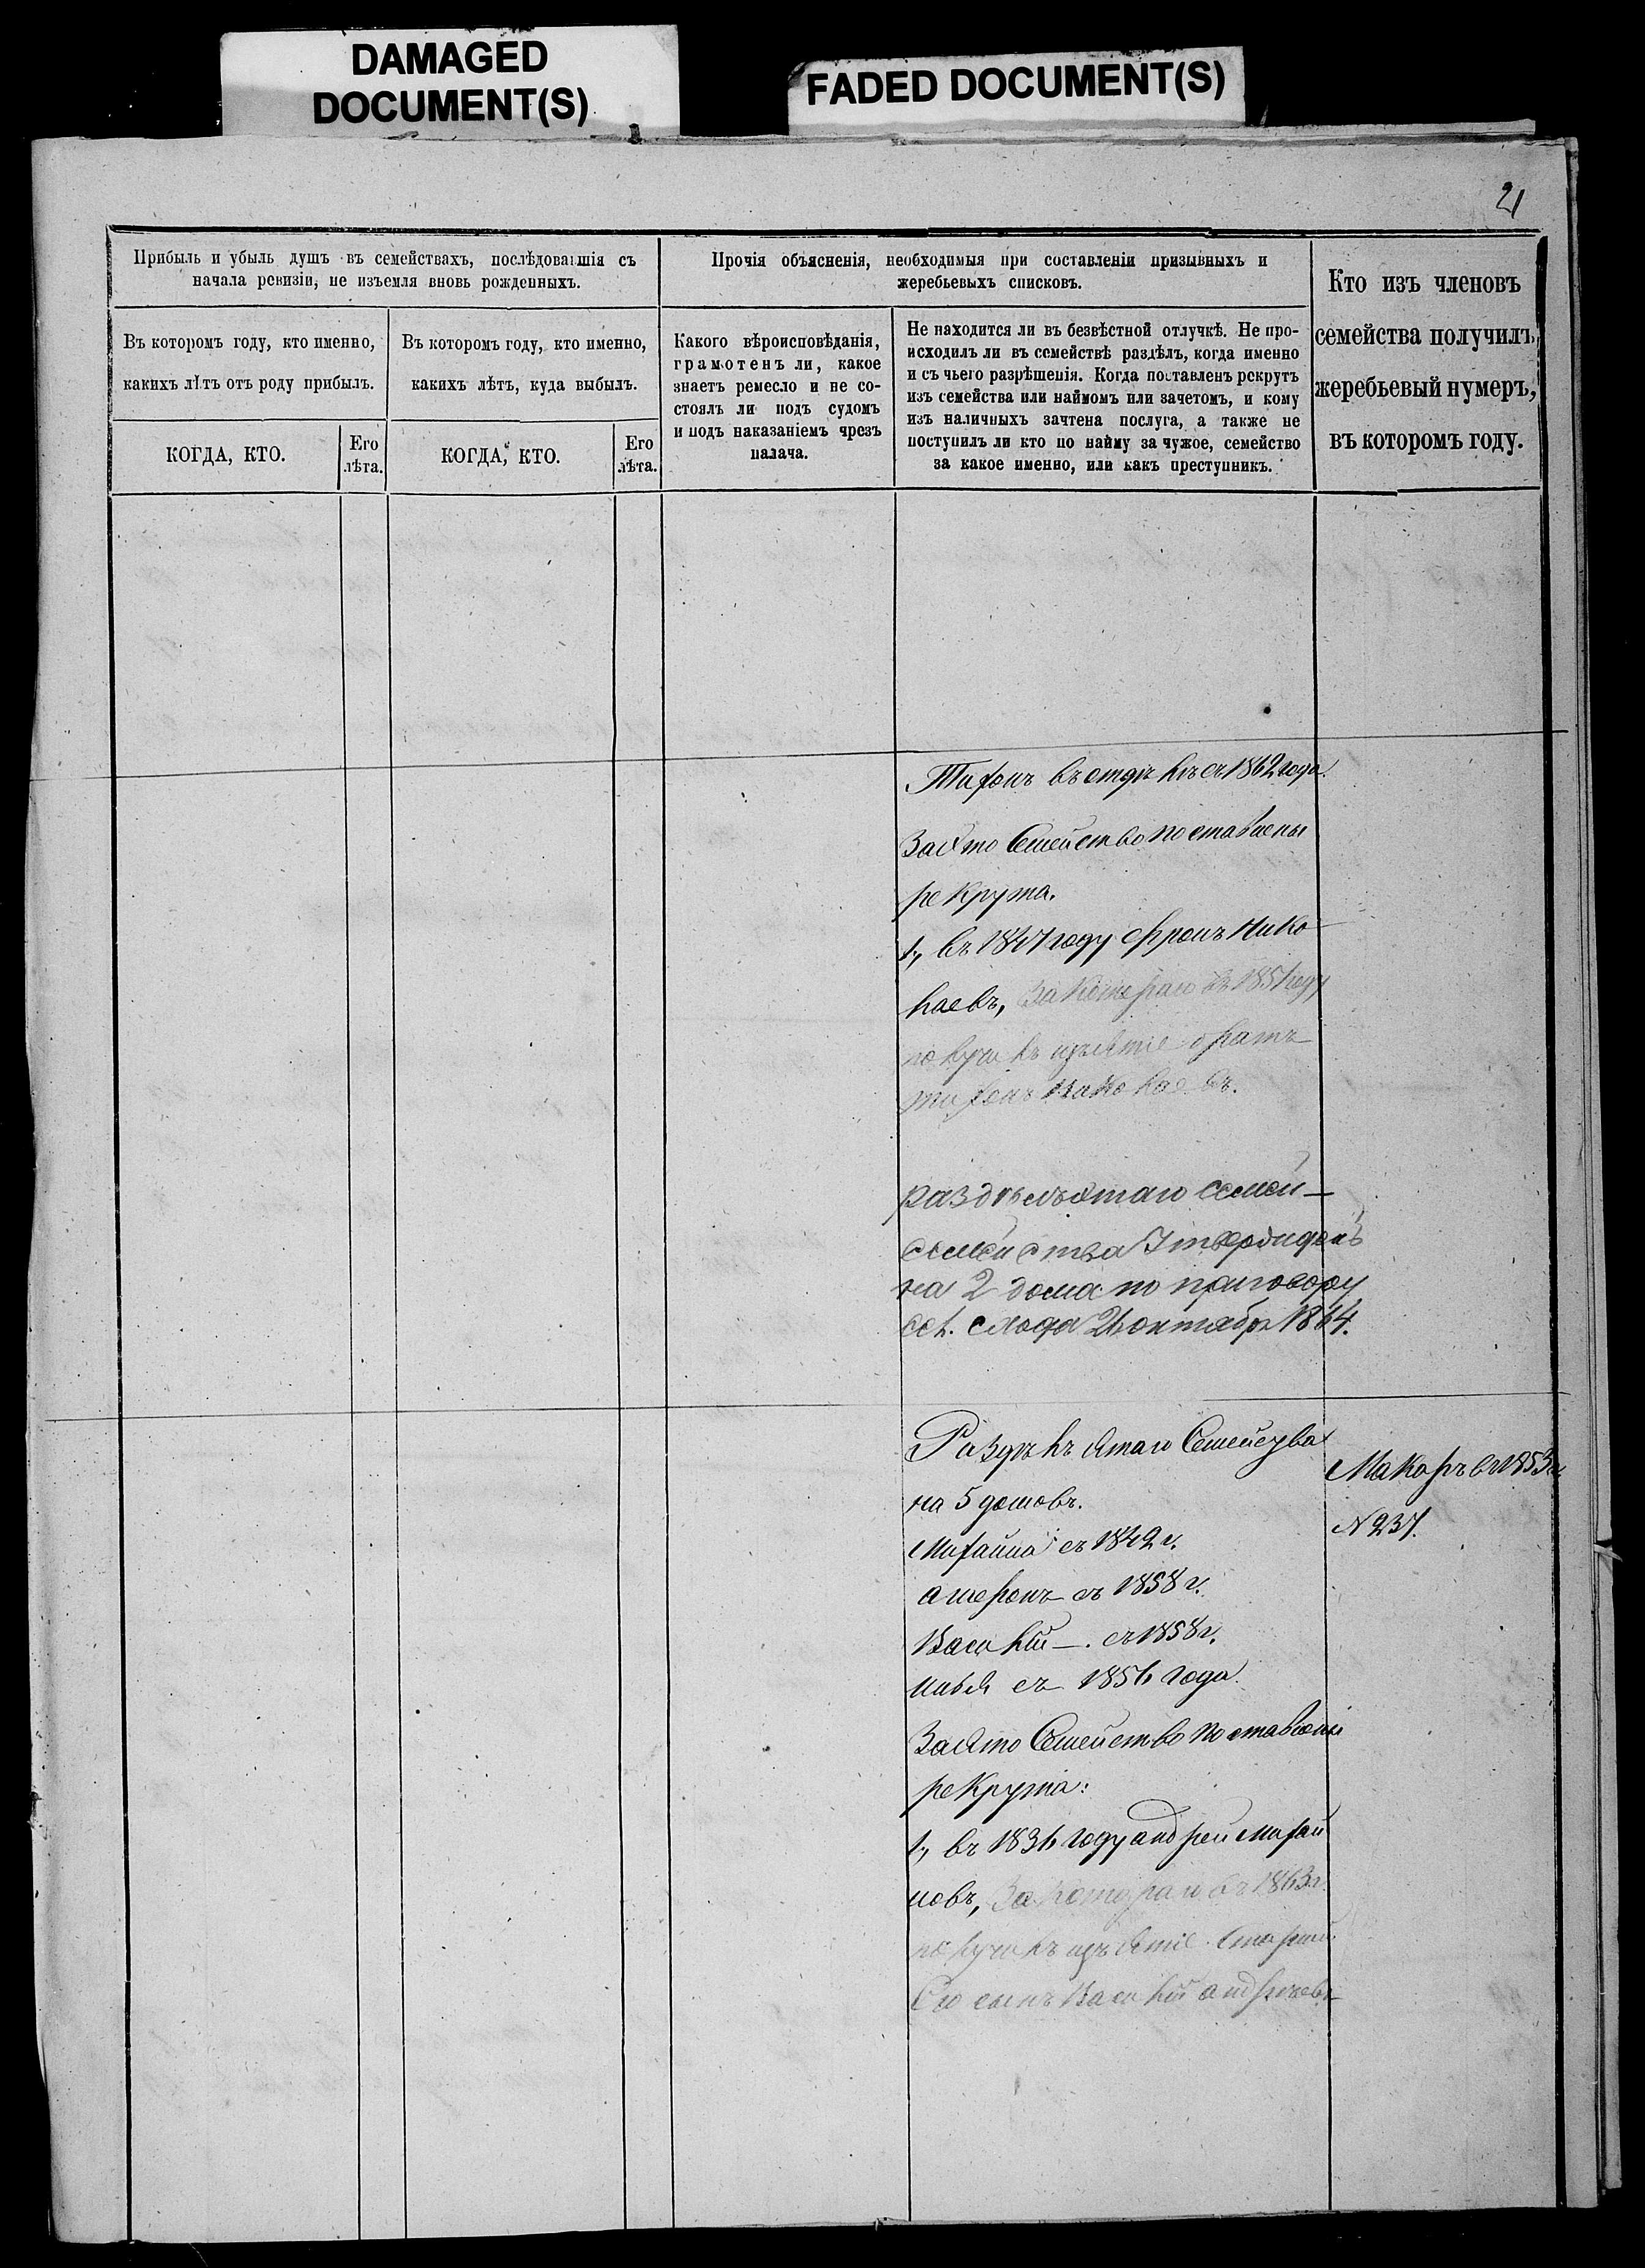 DAMAGED
DOCUMENT(S)
FADED DOCUMENT(S)
21
Прибыль и убыль душъ въ семействахъ, послѣдовавшія съ
начала ревизіи, не изъемля вновь рожденныхъ.
Въ которомъ году, кто именно,
какихъ лѣтъ отъ роду прибылъ.
КОГДА, КТО.
Его
лѣта.
Въ которомъ году, кто именно,
какихъ лѣтъ, куда выбылъ.
КОГДА, КТО.
Его
лѣта.
Прочія объясненія, необходимыя при составленіи призывныхъ и
жеребьевыхъ списковъ.
Какого вѣроисповѣданія,
грамотенъ ли, какое
знаетъ ремесло и не со-
стоялъ ли подъ судомъ
и подъ наказаніемъ чрезъ
палача.
Не находится ли въ безвѣстной отлучкѣ. Не про-
исходилъ ли въ семействѣ раздѣлъ, когда именно
и съ чьего разрѣшенія. Когда поставленъ рекрутъ
изъ семейства или наймомъ или зачетомъ, и кому
изъ наличныхъ зачтена послуга, а также не
поступилъ ли кто по найму за чужое, семейство
за какое именно, или какъ преступникъ.
Кто изъ членовъ
семейства получилъ,
жеребьевый нумеръ,
въ которомъ году.
Тихонъ въ отдѣлѣ съ 1862 года.
За это Семейство поставлены
рекрута.
1, въ 1847 году Нико
лаевъ, За котораго въ 1851 году
получилъ изъятіе братъ
тихонъ Николаевъ.
раздѣлъ этаго семей-
семейства Утвержденъ
на 2 дома по приговору
схода октября 1864.
Раздѣлъ этаго Семейства
на 5 домовъ.
Михайла съ 1842 г.
съ 1858 г.
Василій —. съ 1858 г.
илья съ 1856 года.
За это Семейство поставлены
рекрута:
1, въ 1836 году андрей михай
ловъ, За котораго въ 1863 г.
получилъ изъятіе Старшій
Его сынъ Василій андреевъ
Макаръ въ 1853 г.
N 237.